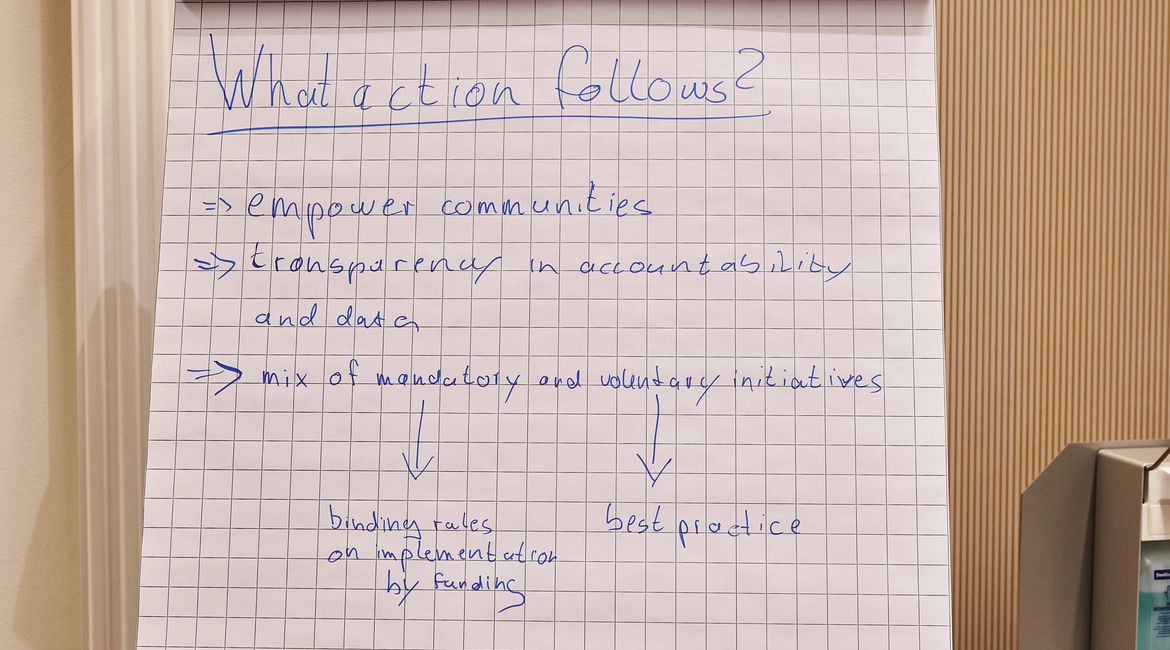 What action follows?
=> empower communities
=> transparency in accountability
and data
=> mix of mandatory and voluntary initiatives
binding rules
on implementation
by funding
best practice